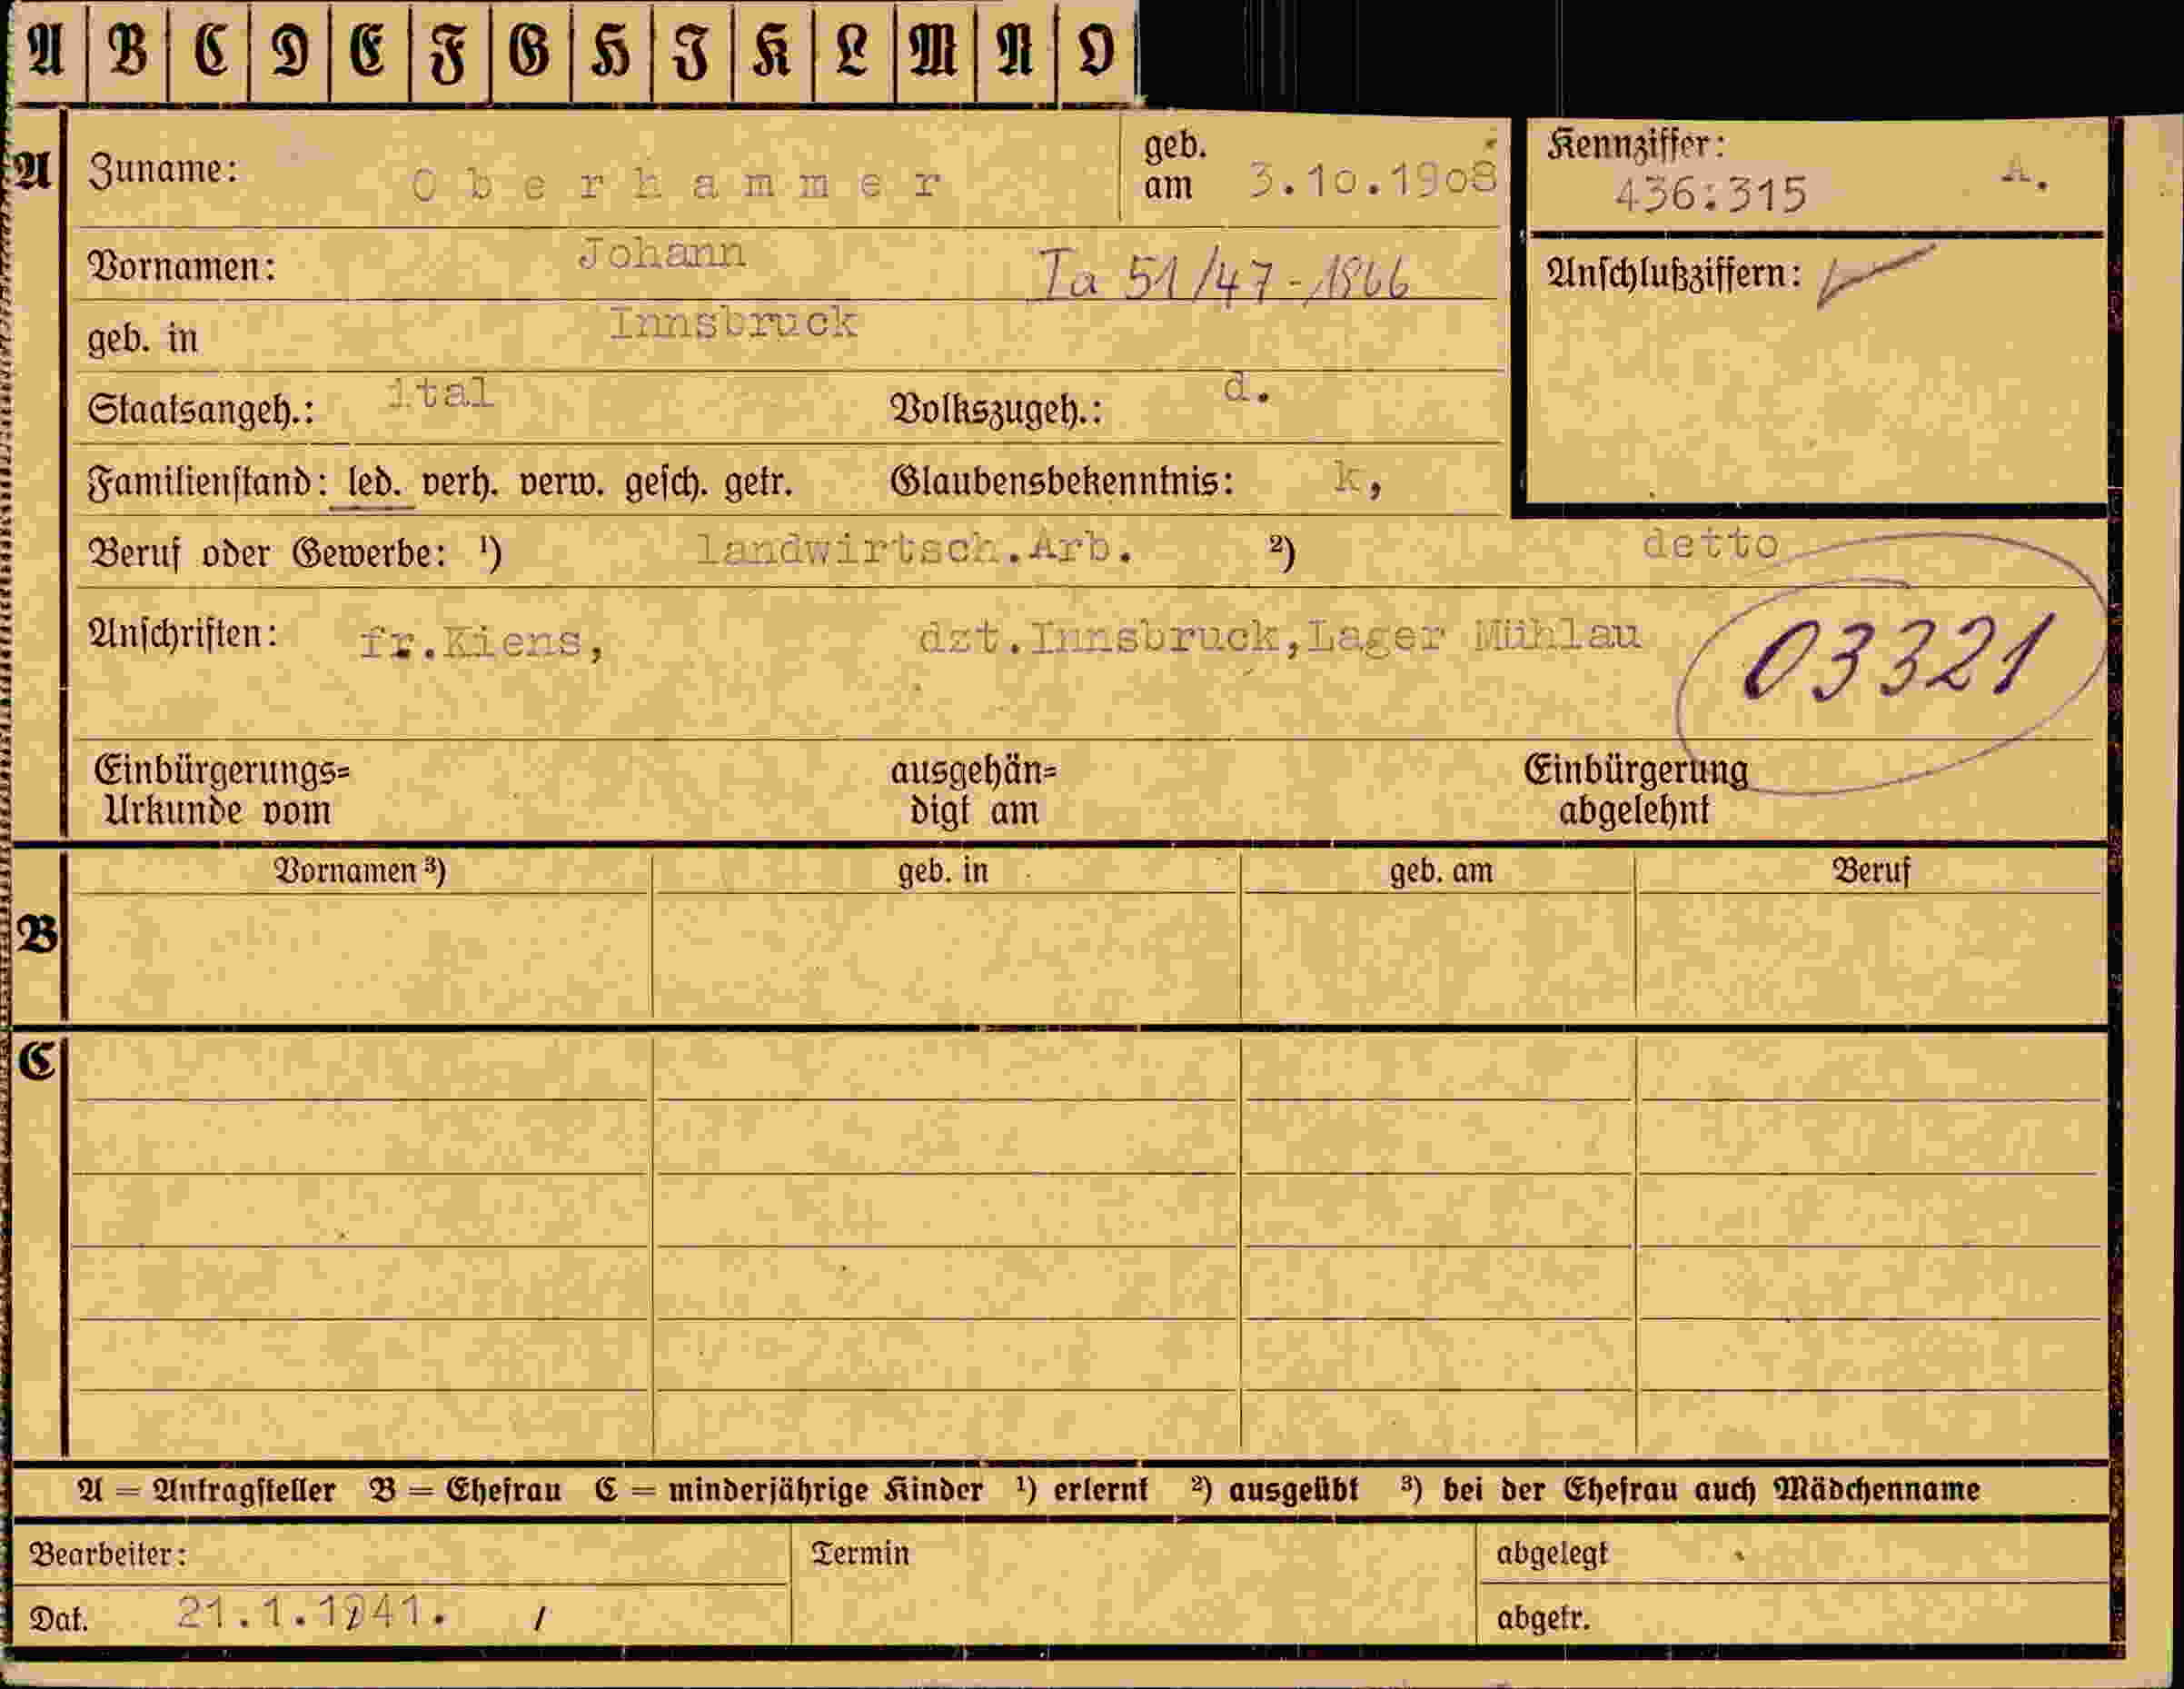 A B C D E F G H I K L M N O
A Zuname: Oberhammer geb. am 3.10.1908 Kennziffer: 436:315 A.
Vornamen: Johann Ia 51/47-1866 Anschlußziffern:
geb. in Innsbruck
Staatsangeh.: ital Volkszugeh.: d.
Familienstand: led. verh. verw. gesch. getr. Glaubensbekenntnis: k,
Beruf oder Gewerbe: ¹) landwirtsch.Arb. ²) detto
Anschriften: fr.Kiens, dzt.Innsbruck,Lager Mühlau 03321
Einbürgerungs= ausgehän= Einbürgerung
Urkunde vom digt am abgelehnt
Vornamen ³) geb. in geb. am Beruf
B
C
A = Antragsteller B = Ehefrau C = minderjährige Kinder ¹) erlernt ²) ausgeübt ³) bei der Ehefrau auch Mädchenname
Bearbeiter: Termin abgelegt
Dat. 21.1.1941. / abgetr.